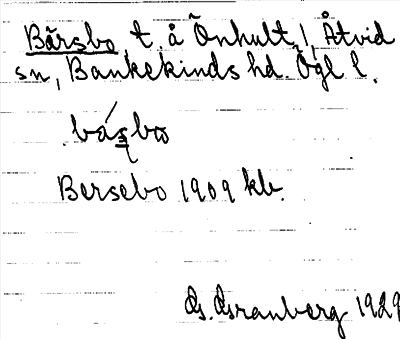 Bärsbo, t. å Önhult, Åtvid
sn, Bankekinds hd. Ögl l.
Bersebo 1909 kb.
G. Granberg 1929